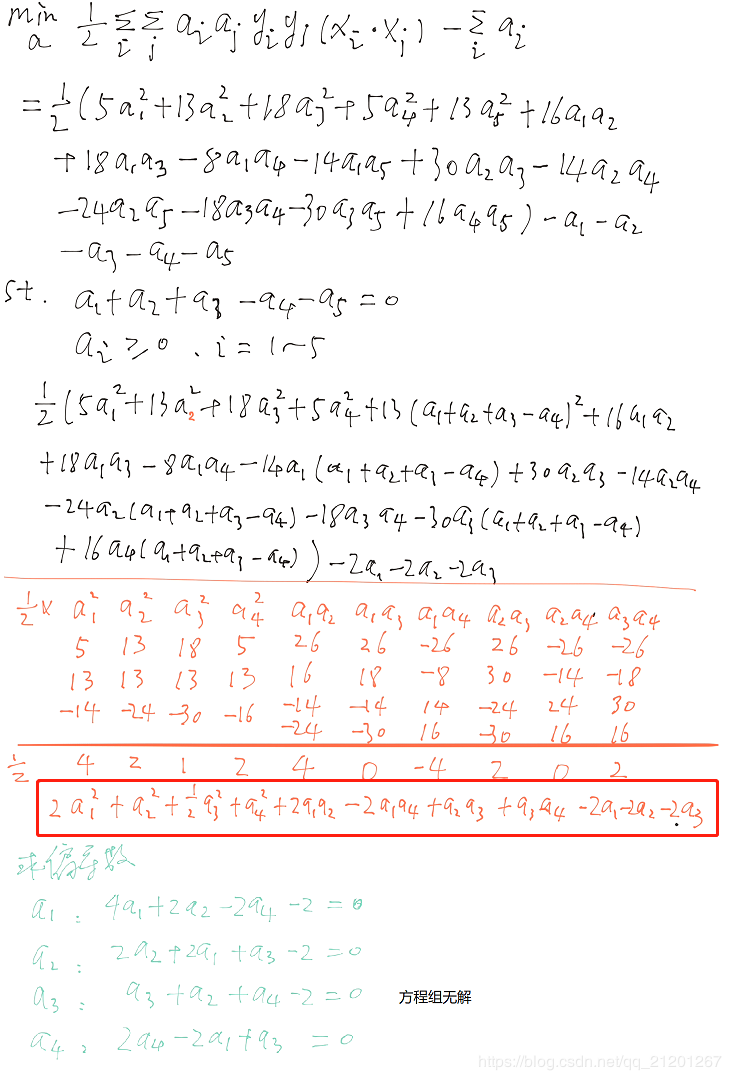 min a 1/2 Σi Σj ai aj yi yj (xi·xj) − Σi ai
= 1/2 (5a1² + 13a2² + 18a3² + 5a4² + 13a5² + 16a1a2
+ 18a1a3 − 8a1a4 − 14a1a5 + 30a2a3 − 14a2a4
− 24a2a5 − 18a3a4 − 30a3a5 + 16a4a5) − a1 − a2
− a3 − a4 − a5
St. a1 + a2 + a3 − a4 − a5 = 0
ai ≥ 0 . i = 1~5
1/2 (5a1² + 13a2² + 18a3² + 5a4² + 13(a1+a2+a3−a4)² + 16a1a2
+ 18a1a3 − 8a1a4 − 14a1(a1+a2+a3−a4) + 30a2a3 − 14a2a4
− 24a2(a1+a2+a3−a4) − 18a3a4 − 30a3(a1+a2+a3−a4)
+ 16a4(a1+a2+a3−a4)) − 2a1 − 2a2 − 2a3
1/2 × a1² a2² a3² a4² a1a2 a1a3 a1a4 a2a3 a2a4 a3a4
5 13 18 5 26 26 −26 26 −26 −26
13 13 13 13 16 18 −8 30 −14 −18
−14 −24 −30 −16 −14 −14 14 −24 24 30
−24 −30 16 −30 16 16
1/2 4 2 1 2 4 0 −4 2 0 2
2a1² + a2² + 1/2a3² + a4² + 2a1a2 − 2a1a4 + a2a3 + a3a4 − 2a1 − 2a2 − 2a3
求偏导数
a1: 4a1 + 2a2 − 2a4 − 2 = 0
a2: 2a2 + 2a1 + a3 − 2 = 0
a3: a3 + a2 + a4 − 2 = 0 方程组无解
a4: 2a4 − 2a1 + a3 = 0
https://blog.csdn.net/qq_21201267